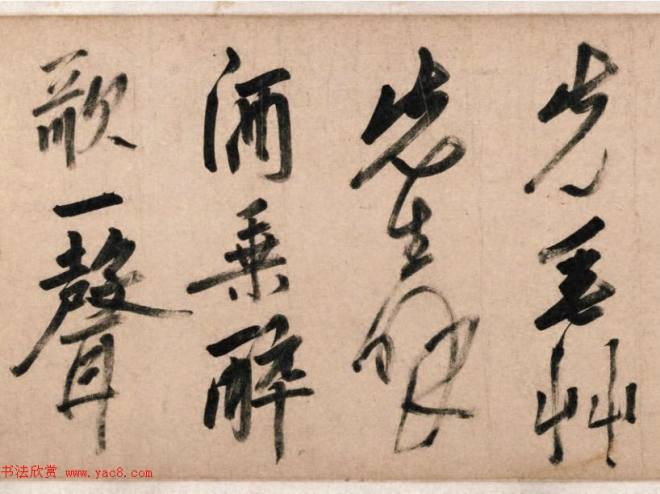 艸
先生
酒乘醉
歌一聲
书法欣赏 www.yac8.com